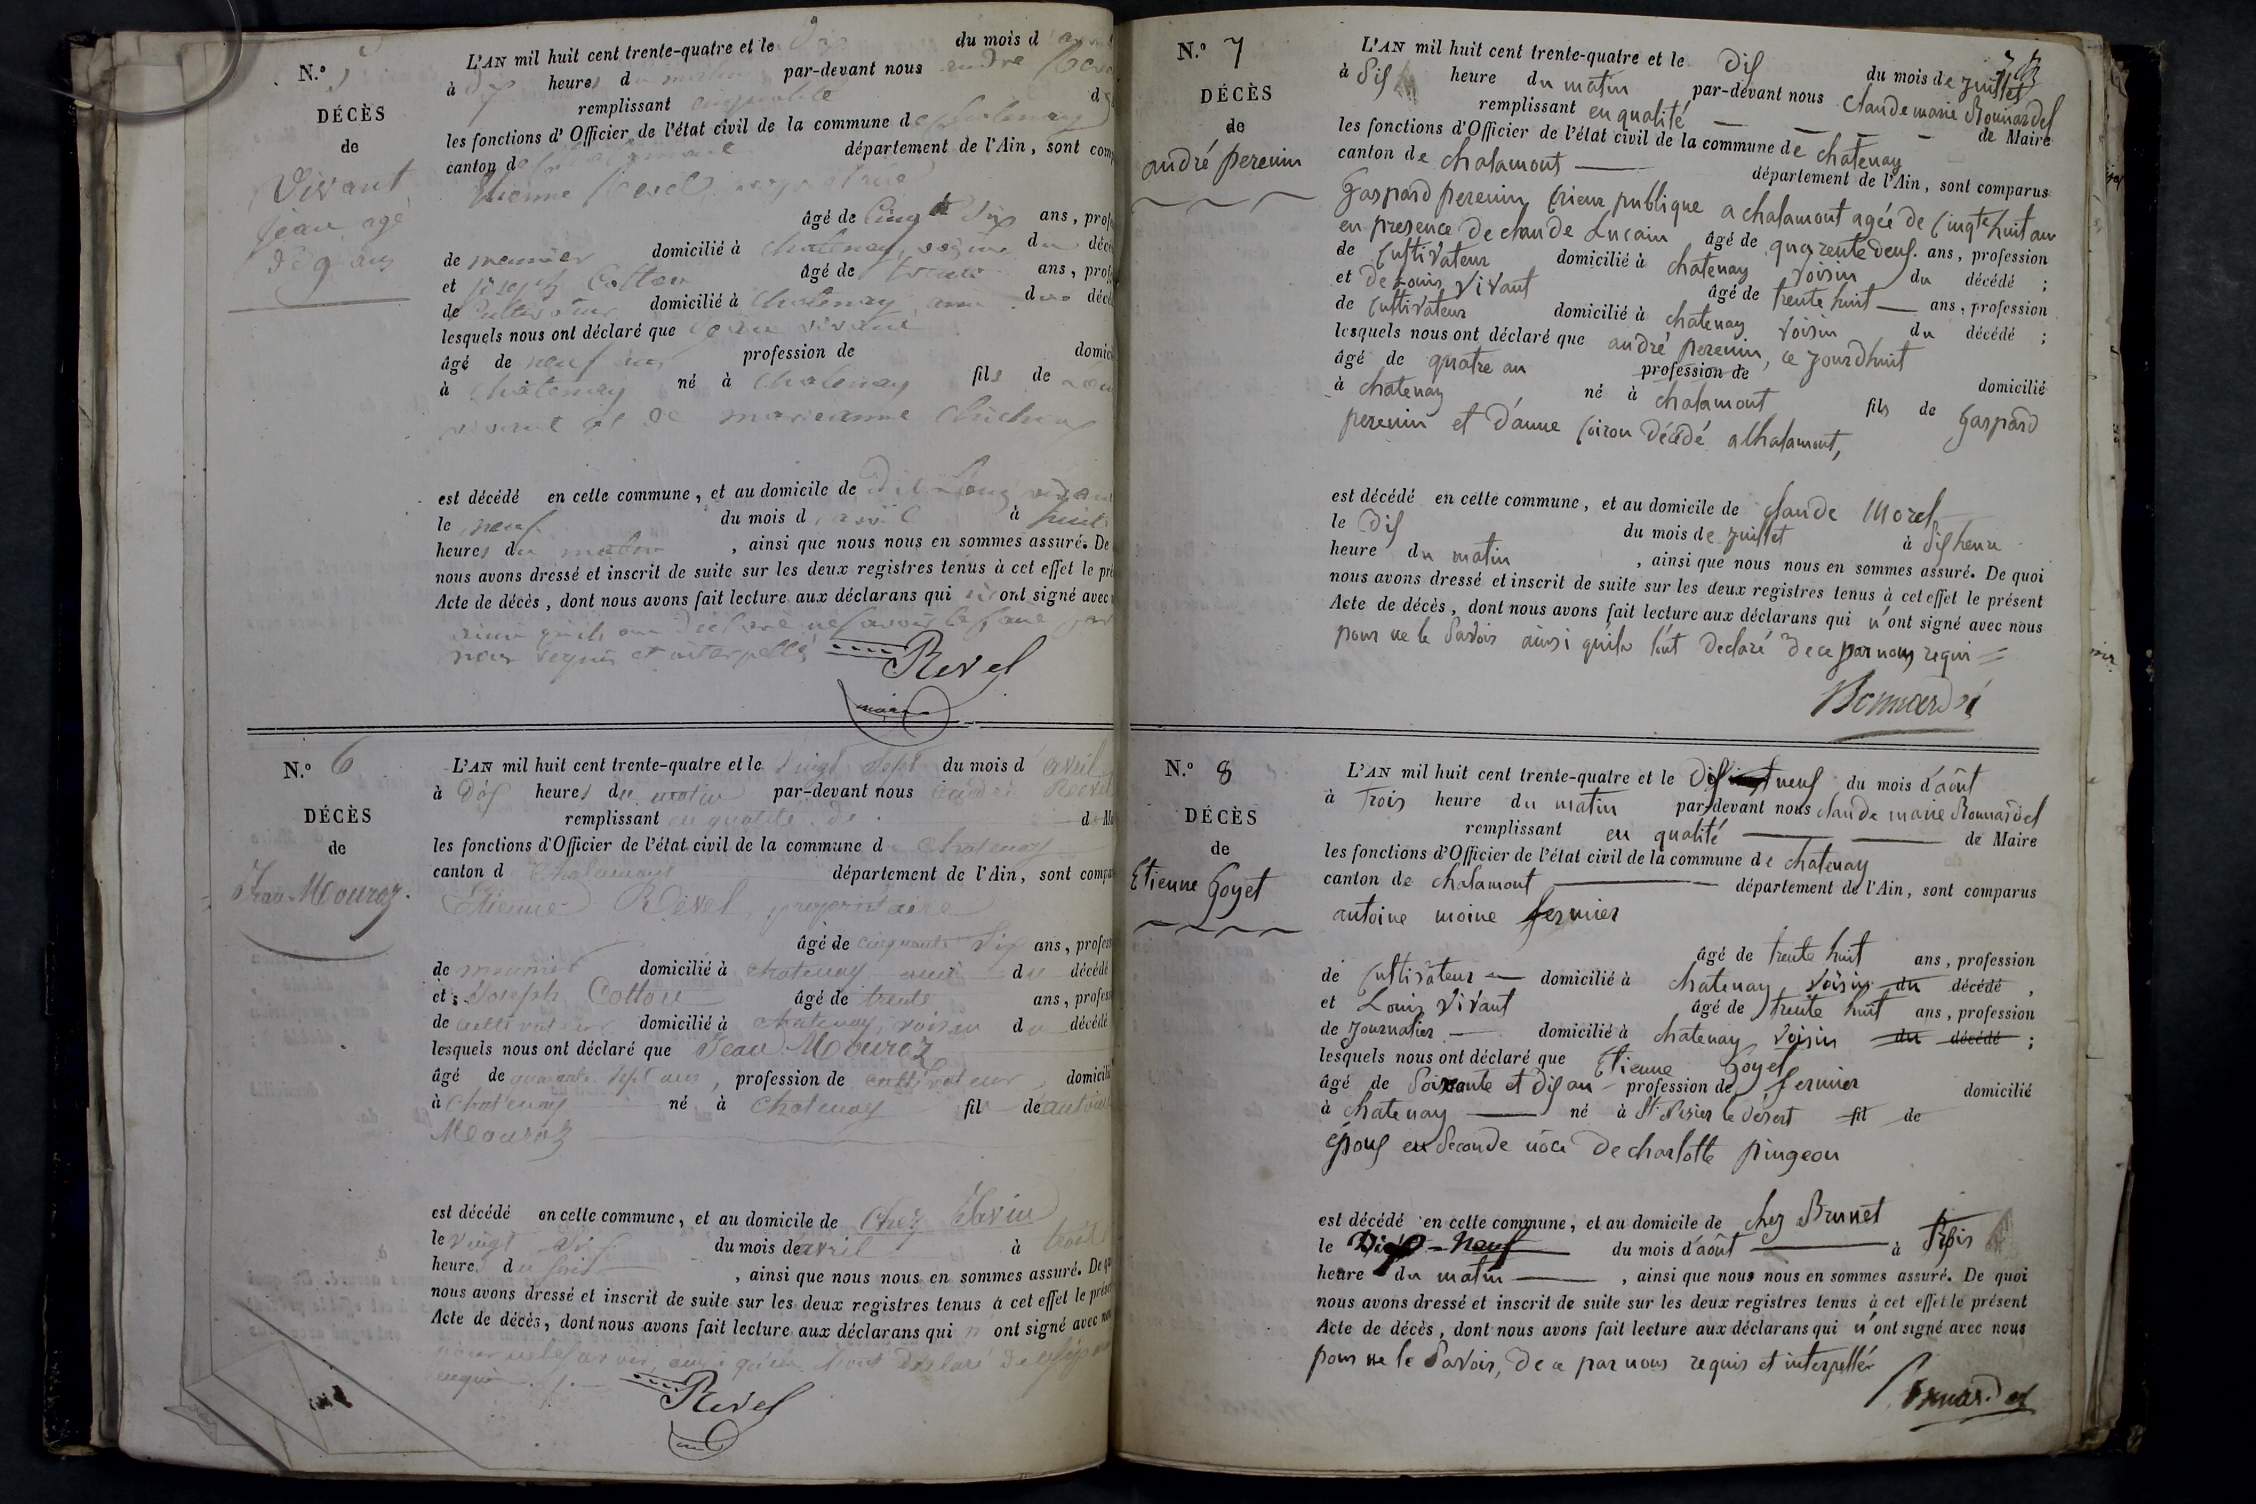 N.° 5
DÉCÈS
de
Vivant
jean agé
de 9 ans
L'AN mil huit cent trente-quatre et le dix du mois d'avril
à dix heures du matin par-devant nous andré
remplissant en qualité
les fonctions d'Officier de l'état civil de la commune de chatenay
canton de département de l'Ain, sont
Etienne Revel propriétaire
âgé de Cinq te Six ans,
de meunier domicilié à chatenay, voisin du
et joseph Cotton âgé de trente ans,
de Cultivateur domicilié à chatenay ami du
lesquels nous ont déclaré que vivant
âgé de neuf ans profession de
à chatenay né à chatenay fils de
vivant et de marieanne
est décédé en cette commune, et au domicile de dit Louis vivant
le neuf du mois d'avril à huit
heures du matin, ainsi que nous nous en sommes assuré. De
nous avons dressé et inscrit de suite sur les deux registres tenus à cet effet le
Acte de décès, dont nous avons fait lecture aux déclarans qui n'ont signé avec
ainsi qu'ils ont déclaré ne savoir le faire
nous requis et interpellés
Revel
maire
N.° 6
DÉCÈS
de
Jean Mouroz.
L'AN mil huit cent trente-quatre et le vingt sept du mois d'avril
à dix heures du matin par-devant nous andré Revel
remplissant en qualité de
les fonctions d'Officier de l'état civil de la commune d chatenay
canton d Chalamont département de l'Ain, sont
Etienne Revel, propriétaire
âgé de cinquante six ans,
de meunier domicilié à chatenay ami du décédé
et Joseph Cotton âgé de trente ans,
de cultivateur domicilié à chatenay, voisin du décédé
lesquels nous ont déclaré que Jean Mouroz
âgé de quarante sept ans, profession de cultivateur,
à Chatenay né à Chatenay fil de antoine
Mouroz
est décédé en cette commune, et au domicile de Chez
le vingt six du mois de avril à
heure du soir, ainsi que nous nous en sommes assuré.
nous avons dressé et inscrit de suite sur les deux registres tenus à cet effet le
Acte de décès, dont nous avons fait lecture aux déclarans qui n ont signé avec
pour ne le savoir, ainsi qu'ils l'ont declaré
requis
Revel
N.° 7
DÉCÈS
de
andré perenin
L'AN mil huit cent trente-quatre et le Dix du mois de juillet
à Dix heure du matin par-devant nous Claude marie Bonnardel
remplissant en qualité de Maire
les fonctions d'Officier de l'état civil de la commune de chatenay
canton de chalamont département de l'Ain, sont comparus
Gaspard perenin, Crieur publique a chalamont agée de Cinqte huit an
en presence de claude Lucain âgé de quarente deux ans, profession
de Cultivateur domicilié à chatenay voisin du décédé ;
et de Louis Vivant âgé de trente huit ans, profession
de Cultivateur domicilié à chatenay voisin du décédé ;
lesquels nous ont déclaré que andré perenin, ce jourdhuit
âgé de quatre an profession de domicilié
à chatenay né à chalamont fils de Gaspard
perenin et d'anne Coiron décédé a Chalamont,
est décédé en cette commune, et au domicile de Claude Morel
le Dix du mois de juillet à Dix heure
heure du matin, ainsi que nous nous en sommes assuré. De quoi
nous avons dressé et inscrit de suite sur les deux registres tenus à cet effet le présent
Acte de décès, dont nous avons fait lecture aux déclarans qui n'ont signé avec nous
pour ne le Savoir ainsi quils l'ont Declaré de ce par nous requi
Bonnardel
N.° 8
DÉCÈS
de
Etienne Goyet
L'AN mil huit cent trente-quatre et le Dix neuf du mois d'août
à Trois heure du matin par-devant nous claude marie Bonnardel
remplissant en qualité de Maire
les fonctions d'Officier de l'état civil de la commune de chatenay
canton de chalamont département de l'Ain, sont comparus
antoine moine fermier
âgé de trente huit ans, profession
de Cultivateur domicilié à chatenay voisin du décédé,
et Louis Vivant âgé de trente huit ans, profession
de journalier domicilié à chatenay voisin du décédé ;
lesquels nous ont déclaré que Etienne Goyet
âgé de Soixante et dix an profession de fermier domicilié
à chatenay né à St Nisier le désert fil de
époux en Seconde nôce De charlotte pingeon
est décédé en cette commune, et au domicile de chez Brunet
le Dix-Neuf du mois d'août à Trois
heure du matin, ainsi que nous nous en sommes assuré. De quoi
nous avons dressé et inscrit de suite sur les deux registres tenus à cet effet le présent
Acte de décès, dont nous avons fait lecture aux déclarans qui n'ont signé avec nous
pour ne le Savoir, de ce par nous requis et interpellér
Bonnardel